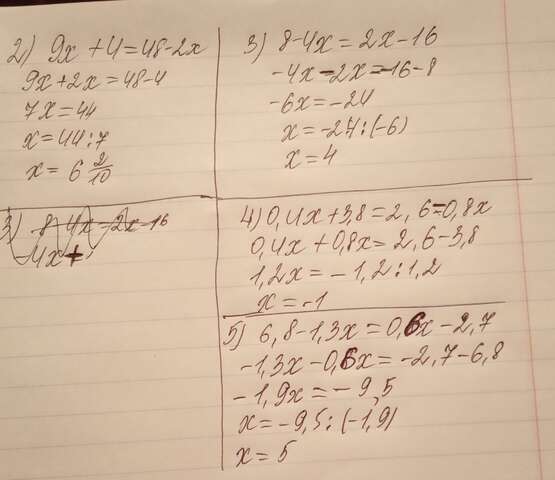 2) 9x + 4 = 48 - 2x
9x + 2x = 48 - 4
7x = 44
x = 44 : 7
x = 6 2/10
3) 8 - 4x = 2x - 16
-4x - 2x = -16 - 8
-6x = -24
x = -24 : (-6)
x = 4
3) 8 4x - 2x - 16
-4x +
4) 0,4x + 3,8 = 2,6 = 0,8x
0,4x + 0,8x = 2,6 - 3,8
1,2x = -1,2 : 1,2
x = -1
5) 6,8 - 1,3x = 0,6x - 2,7
-1,3x - 0,6x = -2,7 - 6,8
-1,9x = -9,5
x = -9,5 : (-1,9)
x = 5